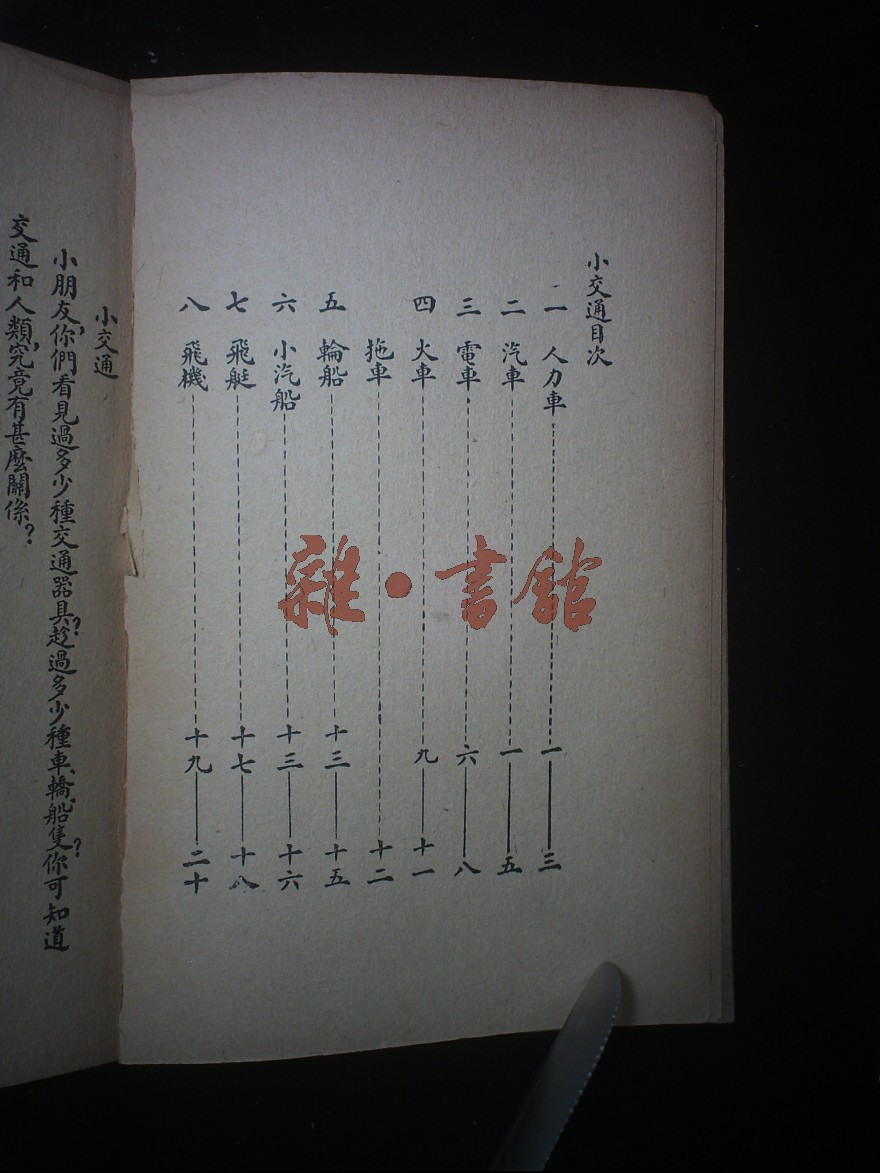 小交通目次
一 人力車------一——三
二 汽車------一——五
三 電車------六——八
四 火車------九——十一
拖車------十二
五 輪船------十三——十五
六 小汽船------十三——十六
七 飛艇------十七——十八
八 飛機------十九——二十
小交通
小朋友,你們看見過多少種交通器具?趁過多少種車、轎、船隻?你可知道
交通和人類,究竟有甚麼關係?
雜·書館